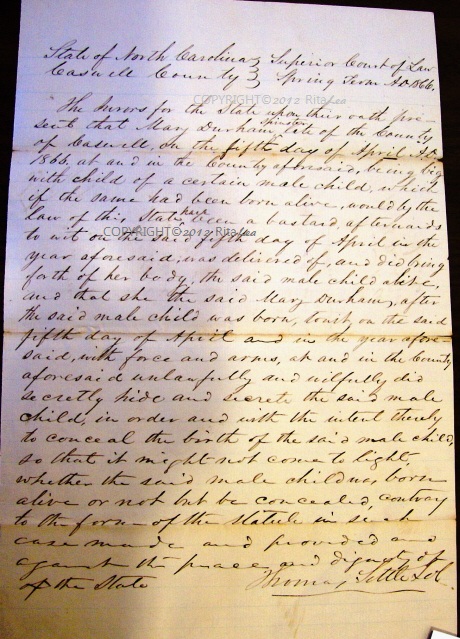 State of North Carolina } Superior Court of Law
Caswell County } Spring Term A.D. 1866.
COPYRIGHT © 2012 RitaLea
The Jurors for the State upon their oath pre-
sent that Mary Durham late of the County
of Caswell, on the fifth day of April A.D.
1866, at and in the County aforesaid, being big
with child of a certain male child, which
if the same had been born alive, would by the
law of this State have been a bastard, afterwards
COPYRIGHT © 2012 RitaLea
to wit on the said fifth day of April in the
year aforesaid, was delivered of, and did bring
forth of her body, the said male child alive,
and that she the said Mary Durham, after
the said male child was born, to wit, on the said
fifth day of April and in the year afore-
said, with force and arms, at and in the County
aforesaid unlawfully and wilfully did
secretly hide and secrete the said male
child, in order and with the intent thereby
to conceal the birth of the said male child,
so that it might not come to light,
whether the said male child was born
alive or not but be concealed, contrary
to the form of the statute in such
case made and provided and
against the peace and dignity of
of the State Thomas Settle Sol.